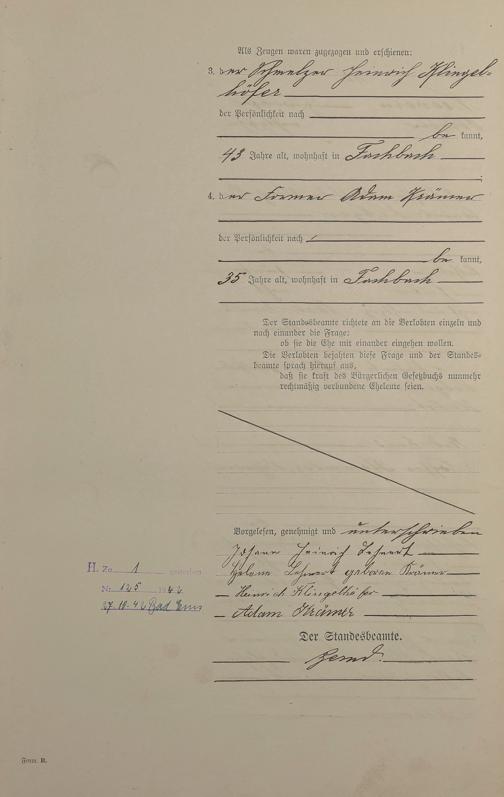 Als Zeugen waren zugezogen und erschienen:
3. der Schmelzer Heinrich Klingel-
höfer
der Persönlichkeit nach
be kannt,
43 Jahre alt, wohnhaft in Fachbach
4. der Former Adam Krämer
der Persönlichkeit nach
be kannt,
35 Jahre alt, wohnhaft in Fachbach
Der Standesbeamte richtete an die Verlobten einzeln und
nach einander die Frage:
ob sie die Ehe mit einander eingehen wollen.
Die Verlobten bejahten diese Frage und der Standes-
beamte sprach hierauf aus,
daß sie kraft des Bürgerlichen Gesetzbuchs nunmehr
rechtmäßig verbundene Eheleute seien.
Vorgelesen, genehmigt und unterschrieben
Johann Heinrich Lehnert
Helene Lehnert geborene Krämer
Heinrich Klingelhöfer
Adam Krämer
H. Zu 1 gestorben
Nr. 125 1942
27.10.42 Bad Ems
Der Standesbeamte.
Form. B.